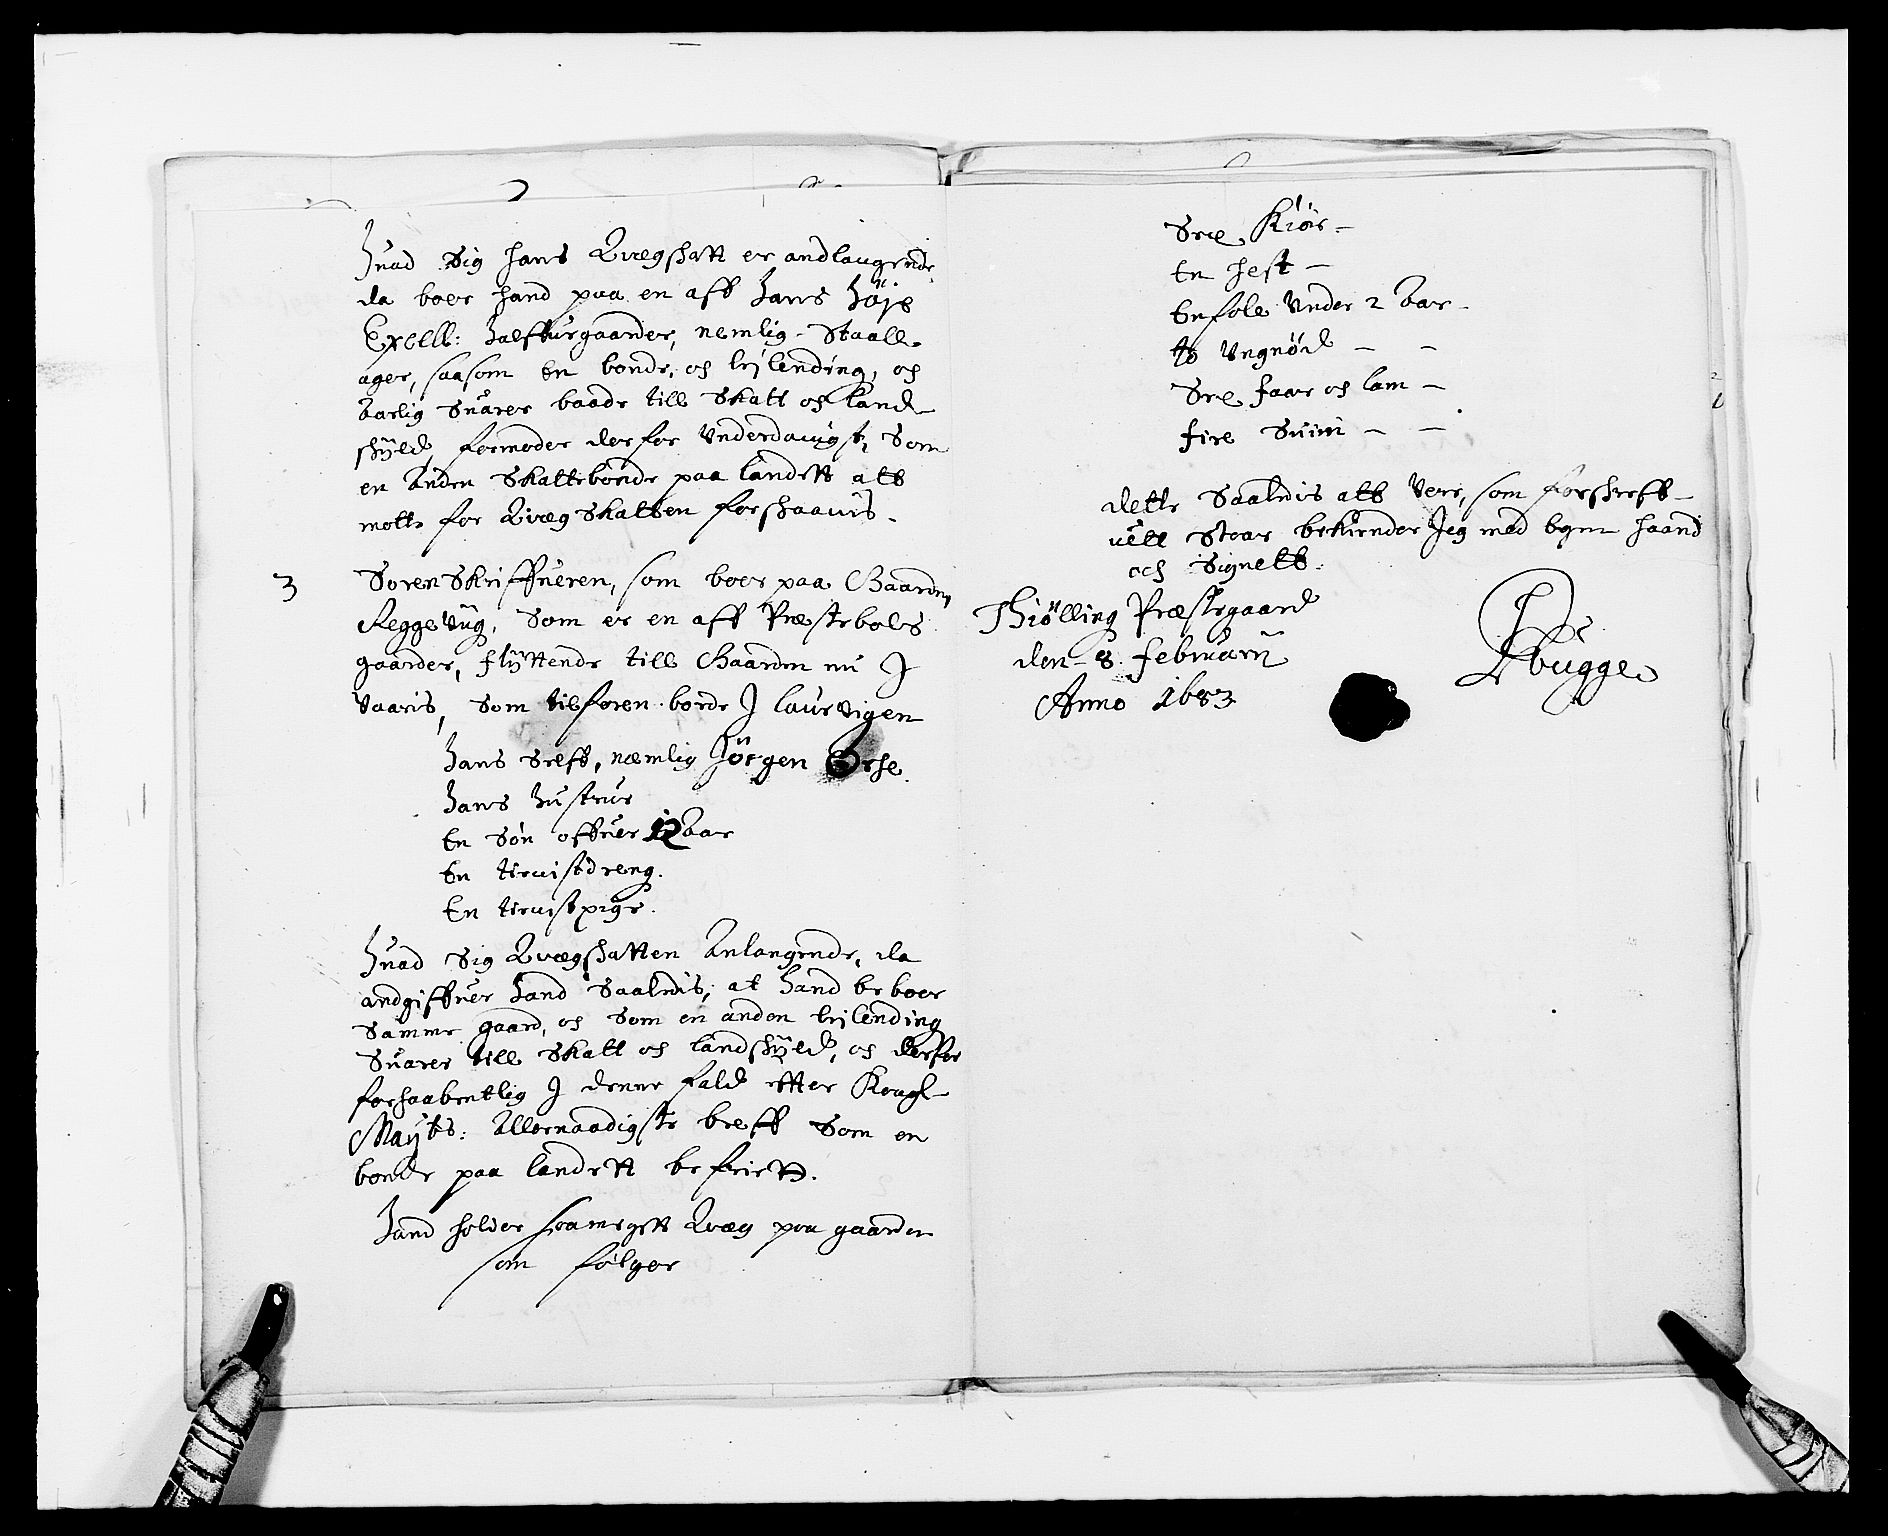 Huad Sig hans Qvægskatt er andlangende
da boer hand paa en aff hans Höje
Excell: Halffuegaarder, nemlig Staall-
ager, saasom en bonde, og lejlending, og
Aarlig Suarer baade till Skatt og land-
skÿld, formoder derfor Underdanigst, Som
en Anden Skattebonde paa landett att
motte for Qvæg Skatten forskaanis.
3 Sorenskriffueren, som boer paa Gaarden
Reggevüg, Som er en aff Præstebols
gaarder, flÿttende till Gaarden nu J
Vaaris, Som tilforen boede J laurvigen
Hans Sielff, næmlig Jörgen
Hans Hustrue
En Sön offuer 12 Aar
En tienistdreng.
En tienistpige.
Huad Sig Qvægskatten Anlangende, da
andgiffuer Hand Saaledis, at Hand beboer
Samme gaard, og Som en anden lejlending
Suarer till Skatt og landskÿld, og derfor
forhaabentlig J denne fald efter Kongl-
Maÿts: Allernaadigste breff Som en
bonde paa landett befriett.
Hand holder saameget Qvæg paa gaarden
som fölger
Sex Kiör -
En hest -
En fole Under 2 Aar -
to Ungnöed - -
Sex faar og lam -
fire Suin - -
dette Saaledis att Vere, som forschreff-
uett Staar bekiender Jeg med egen haand
och Signett.
Thiölling Præstegaard
den 8. februarij
Anno 1683
Bugge